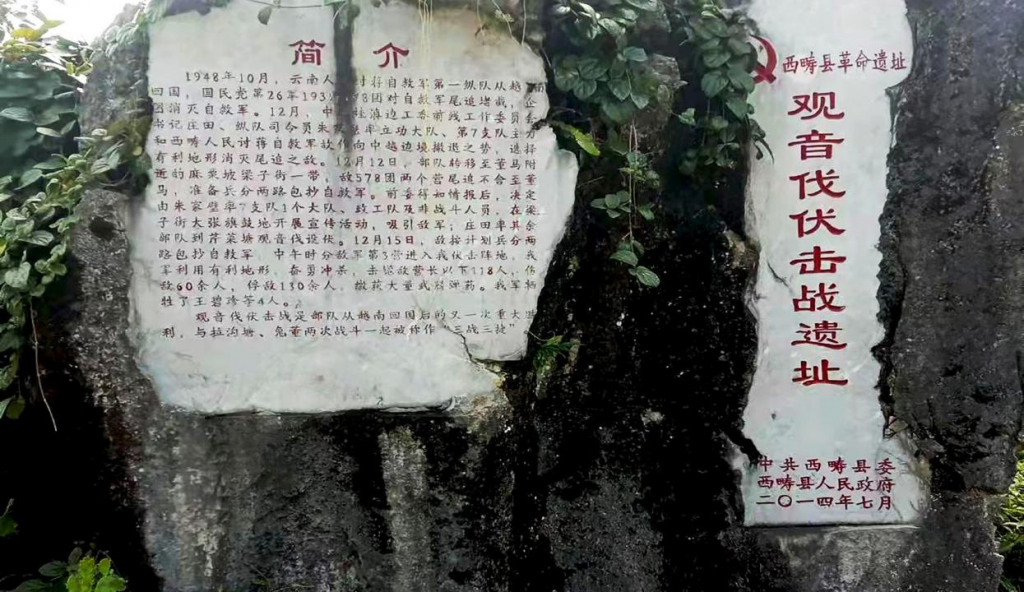 简介
1948年10月，云南人 讨蒋自救军第一纵队从越
回国，国民党第26军193 78团对自救军尾追堵截，企
图消灭自救军。12月，中 桂滇边工委前线工作委员会
书记庄田、纵队司令员朱家璧率立功大队、第7支队主力
和西畴人民讨蒋自救军故作向中越边境撤退之势，选择
有利地形消灭尾追之敌。12月12日，部队转移至董马附
近的麻栗坡梁子街一带，敌578团两个营尾追不舍至董
马，准备兵分两路包抄自救军。前委得知情报后，决定
由朱家璧率7支队1个大队、政工队及非战斗人员，在梁
子街大张旗鼓地开展宣传活动，吸引敌军；庄田率其余
部队到芹菜塘观音伐设伏。12月15日，敌按计划兵分两
路包抄自救军，中午时分敌军第3营进入我伏击阵地，我
军利用有利地形，奋勇冲杀，击毙敌营长以下118人，伤
敌60余人，俘敌130余人，缴获大量武器弹药。我军牺
牲了王碧 等4人。
观音伐伏击战是部队从越南回国后的又一次重大胜
利，与拉沟塘、兔董两次战斗一起被称作“三战三捷”
西畴县革命遗址
观音伐伏击战遗址
中共西畴县委
西畴县人民政府
二〇一四年七月